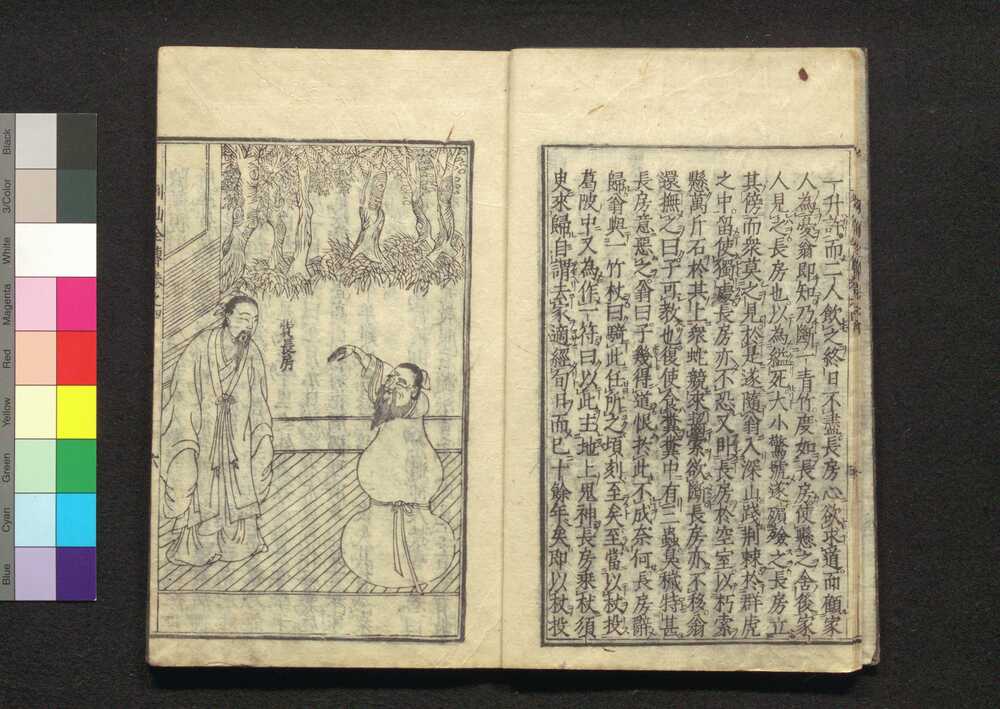 一升許而二人飲之終日不盡長房心欲求道而顧家
人為憂翁即知乃斷一青竹度如長房使懸之舍後家
人見之長房也以為縊死大小驚號遂殯殮之長房立
其傍而衆莫之見於是遂隨翁入深山踐荊棘於群虎
之中留使獨處長房亦不恐又臥長房於空室以朽索
懸萬斤石於其上衆蛇競來齧索欲斷長房亦不移翁
還撫之曰子可教也復使食糞糞中有三蟲臭穢特甚
長房意惡之翁曰子幾得道恨於此不成奈何長房辭
歸翁與一竹杖曰騎此任所之頃刻至矣至當以杖投
葛陂中又為作一符曰以此主地上鬼神長房乘杖須
臾來歸自謂去家適經旬日而已十餘年矣即以杖投
費長房
Black
3/Color
White
Magenta
Red
Yellow
Green
Cyan
Blue